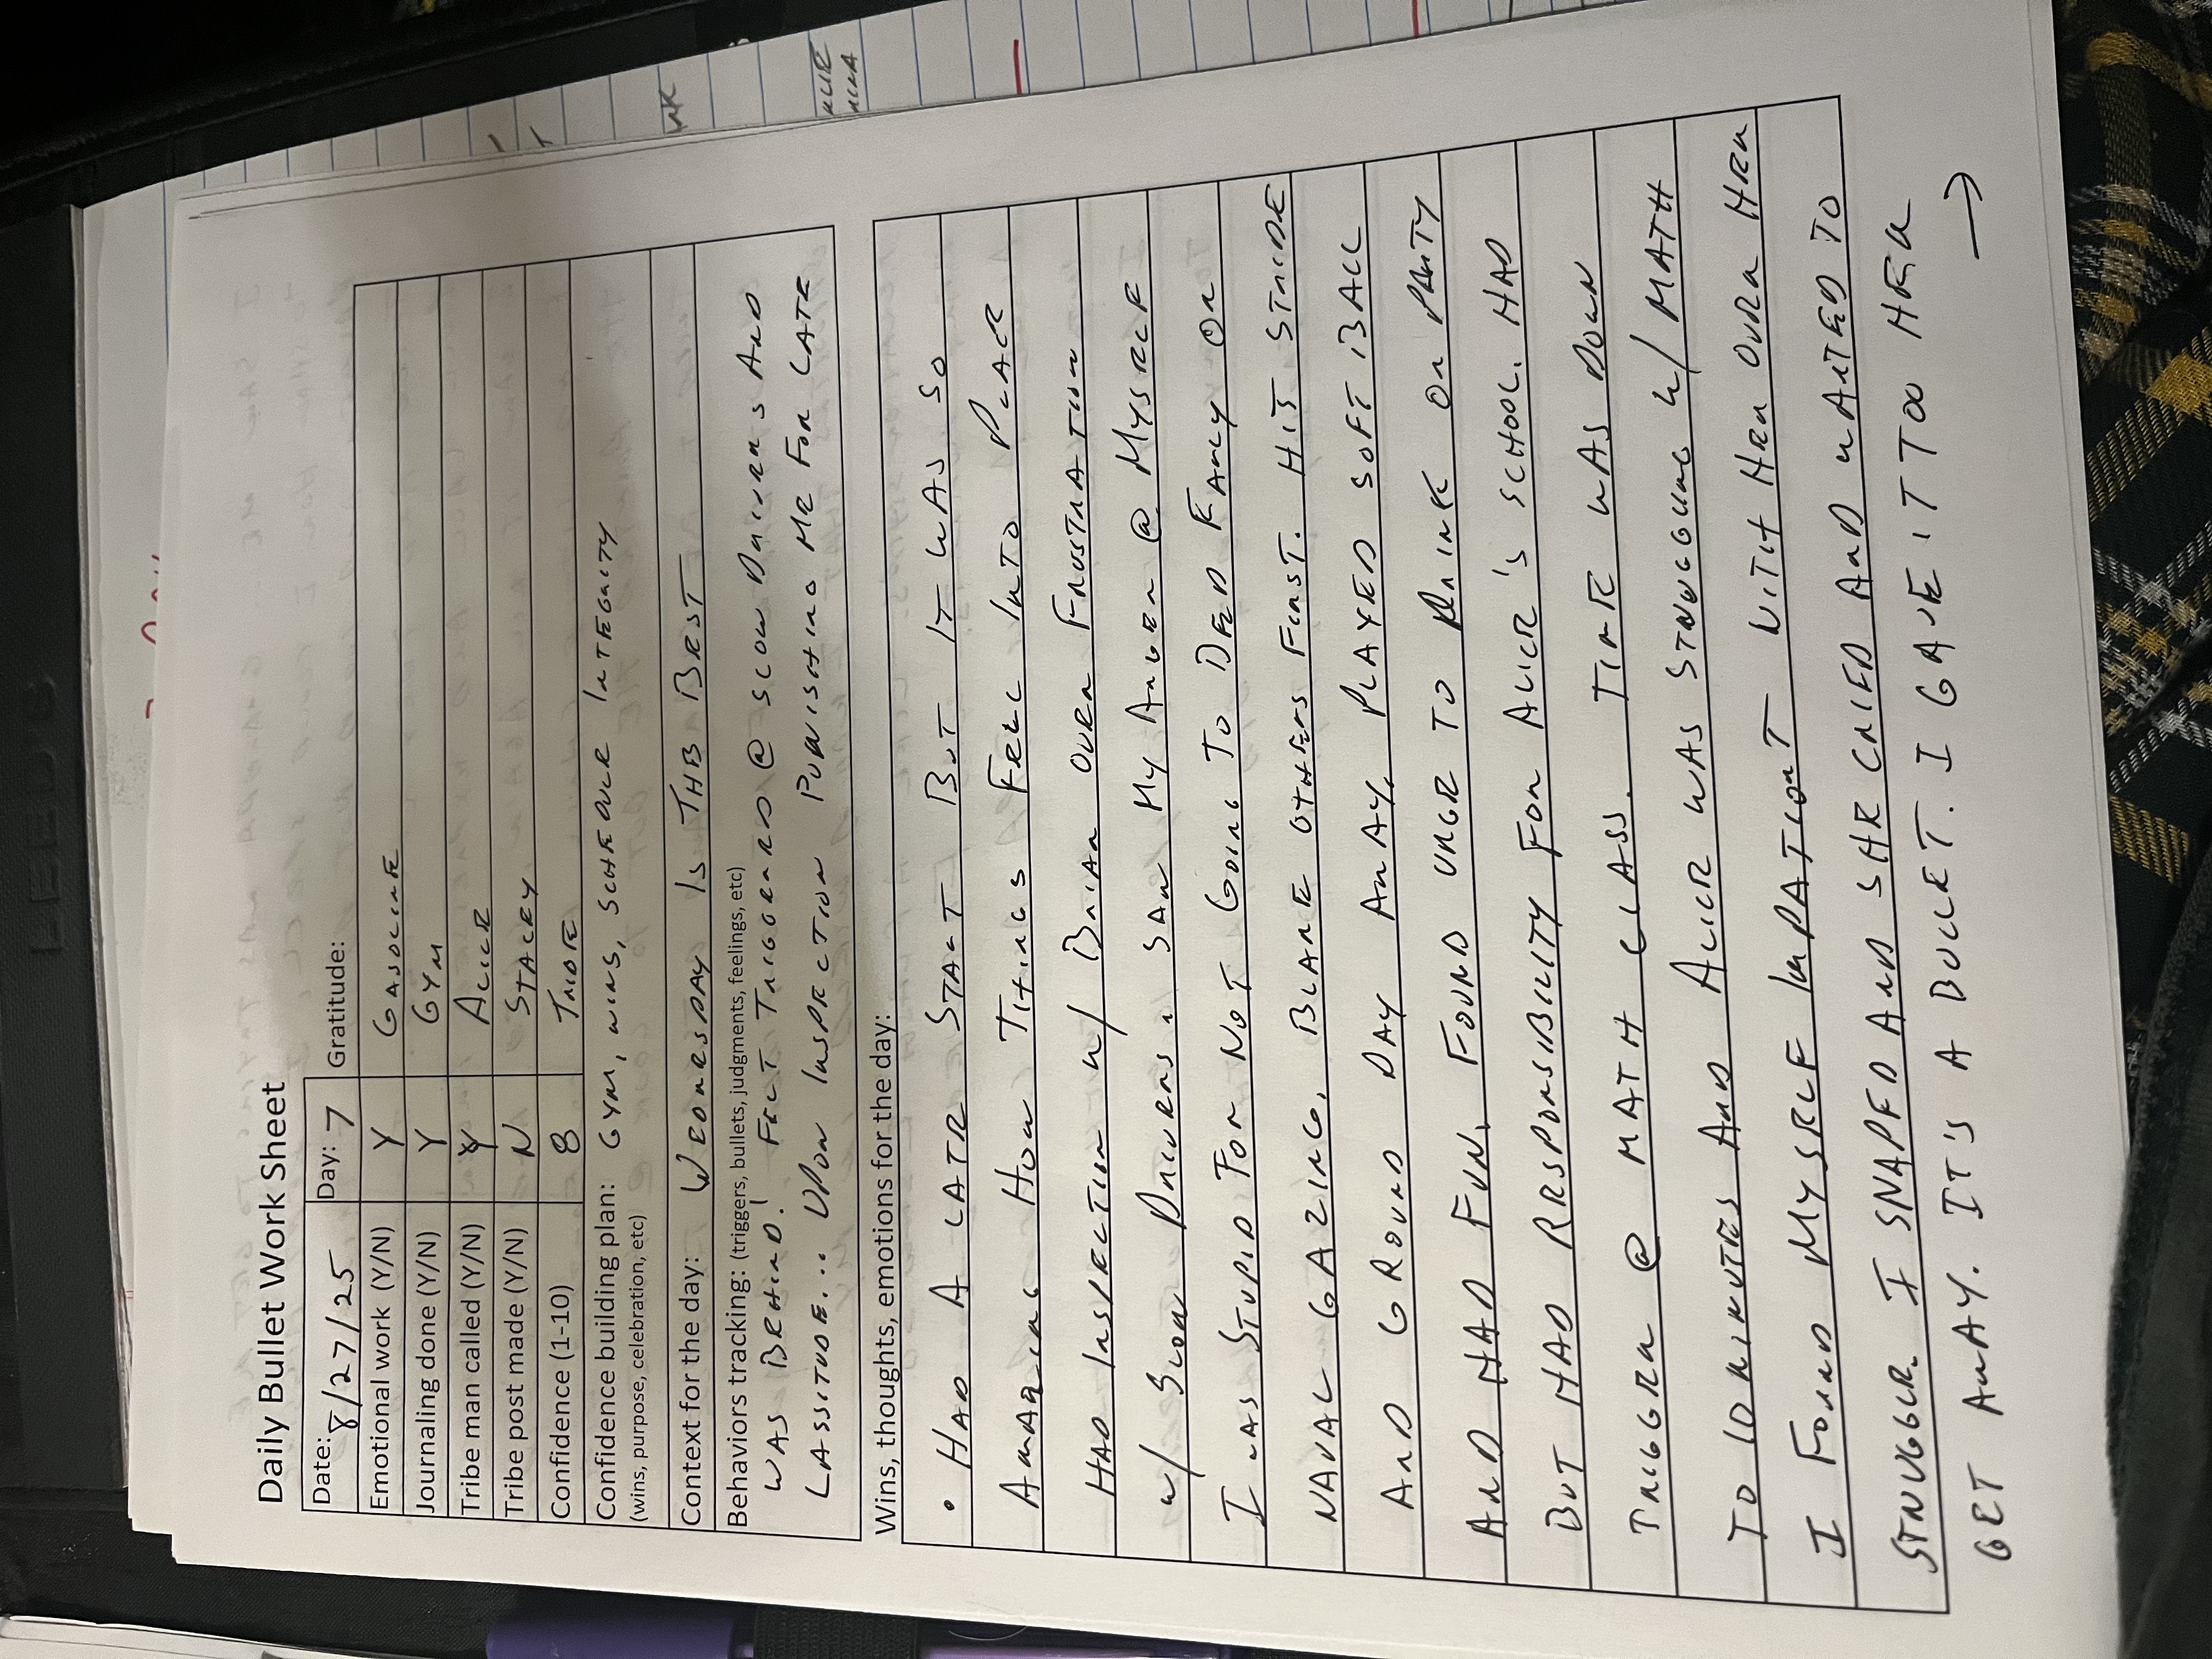 Daily Bullet Work Sheet
Date: 8/27/25 Day: 7 Gratitude:
Emotional work (Y/N) Y GASOLINE
Journaling done (Y/N) Y GYM
Tribe man called (Y/N) Y ALICE
Tribe post made (Y/N) N STACEY
Confidence (1-10) 8 TRIBE
Confidence building plan: GYM, WINS, SCHEDULE INTEGRITY
(wins, purpose, celebration, etc)
Context for the day: WEDNESDAY IS THE BEST
Behaviors tracking: (triggers, bullets, judgments, feelings, etc)
WAS BEHIND! FELT TRIGGERED @ SLOW DRIVERS AND
LASSITUDE... UPON INSPECTION PUNISHING ME FOR LATE
Wins, thoughts, emotions for the day:
• HAD A LATE START BUT IT WAS SO
HOW THINGS FELL INTO PLACE
HAD INSPECTION W/ BRIAN OVER FRUSTRATION
W/ SLOW DRIVERS. SAW MY ANGER @ MYSELF
I WAS STUPID FOR NOT GOING TO BED EARLY OR
NAVAL GAZING, BLAME OTHERS FIRST. HIT STRIDE
AND GROUND DAY AWAY. PLAYED SOFTBALL
AND HAD FUN. FOUND URGE TO DRINK OR PARTY
BUT HAD RESPONSIBILITY FOR ALICE'S SCHOOL. HAD
TRIGGER @ MATH CLASS. TIME WAS DOWN
TO 10 MINUTES AND ALICE WAS STRUGGLING W/ MATH
I FOUND MYSELF IMPATIENT WITH HER OVER HER
STRUGGLE. I SNAPPED AND SHE CRIED AND WANTED TO
GET AWAY. IT'S A BULLET. I GAVE IT TO HER →
WK